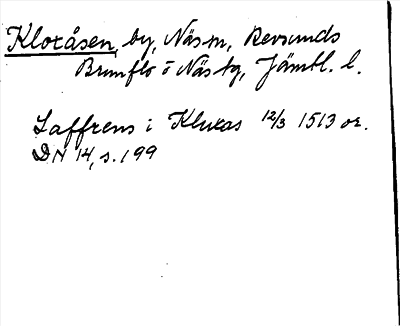 Kloxåsen, by, Näs sn, Revsunds
Brunflo o Näs tg, Jämtl. l.
Laffrens i Kluxas 12/3 1513 or.
DN 14, s. 199